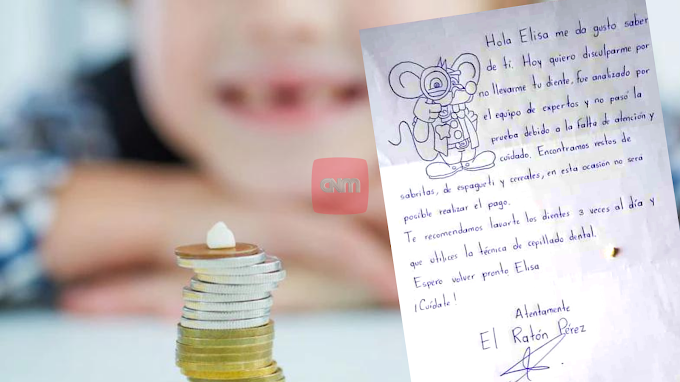 Hola Elisa me da gusto saber
de ti. Hoy quiero disculparme por
no llevarme tu diente, fue analizado por
el equipo de expertos y no pasó la
prueba debido a la falta de atención y
cuidado. Encontramos restos de
sabritas, de espagueti y cereales, en esta ocasion no sera
posible realizar el pago.
Te recomendamos lavarte los dientes 3 veces al día y
que utilices la técnica de cepillado dental.
Espero volver pronto Elisa
¡Cuídate!
Atentamente
El Ratón Pérez
CNM